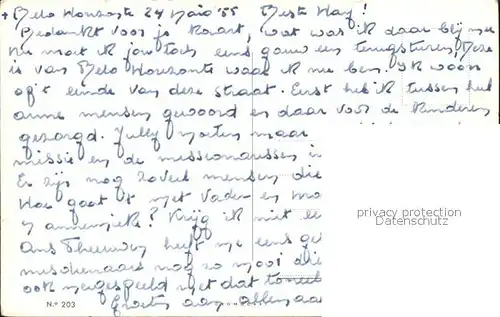 + Belo Horizonte 24 Maio '55 Beste Hay!
Bedankt voor je kaart, wat was ik daar blij mee
Nu moet ik jou toch eens gauw een terugsturen, deze
is van Belo Horizonte waar ik nu ben. Ik woon
op 't einde van deze straat. Eerst heb ik tussen hele
arme mensen gewoond en daar voor de kinderen
gezorgd. Jullie moeten maar
missie en de missionarissen
Er zijn nog zoveel mensen die
Hoe gaat 't met Vader en Mo
n annemieke? Krijg ik niet ee
Ans Theeuwen heeft me eens ge
misdienaars nog zo mooi die
ook meegespeeld met dat toneel
Groeten aan allen aa
N.º 203
privacy protection
Datenschutz